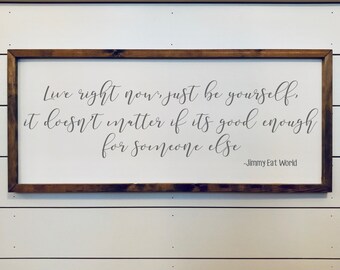 Live right now, just be yourself,
it doesn't matter if its good enough
for someone else
-Jimmy Eat World